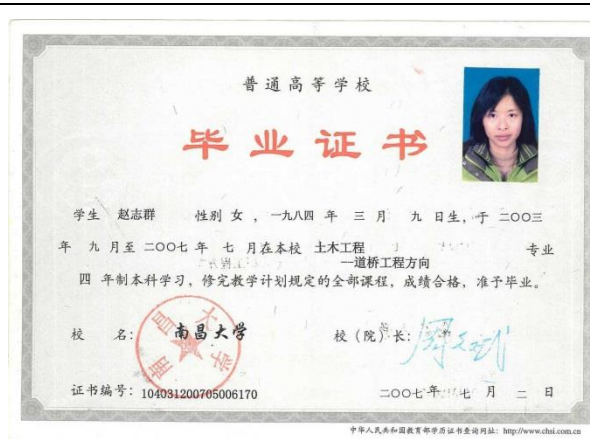 普通高等学校
毕业证书
学生 赵志群 性别 女 ，一九八四 年 三 月 九 日生，于 二○○三
年 九 月至 二○○七 年 七 月在本校 土木工程 专业
—道桥工程方向
四 年制本科学习，修完教学计划规定的全部课程，成绩合格，准予毕业。
校 名： 南昌大学 校（院）长：周文斌
南昌大学
证书编号：104031200705006170 二○○七 年 七 月 二 日
中华人民共和国教育部学历证书查询网址：http://www.chsi.com.cn